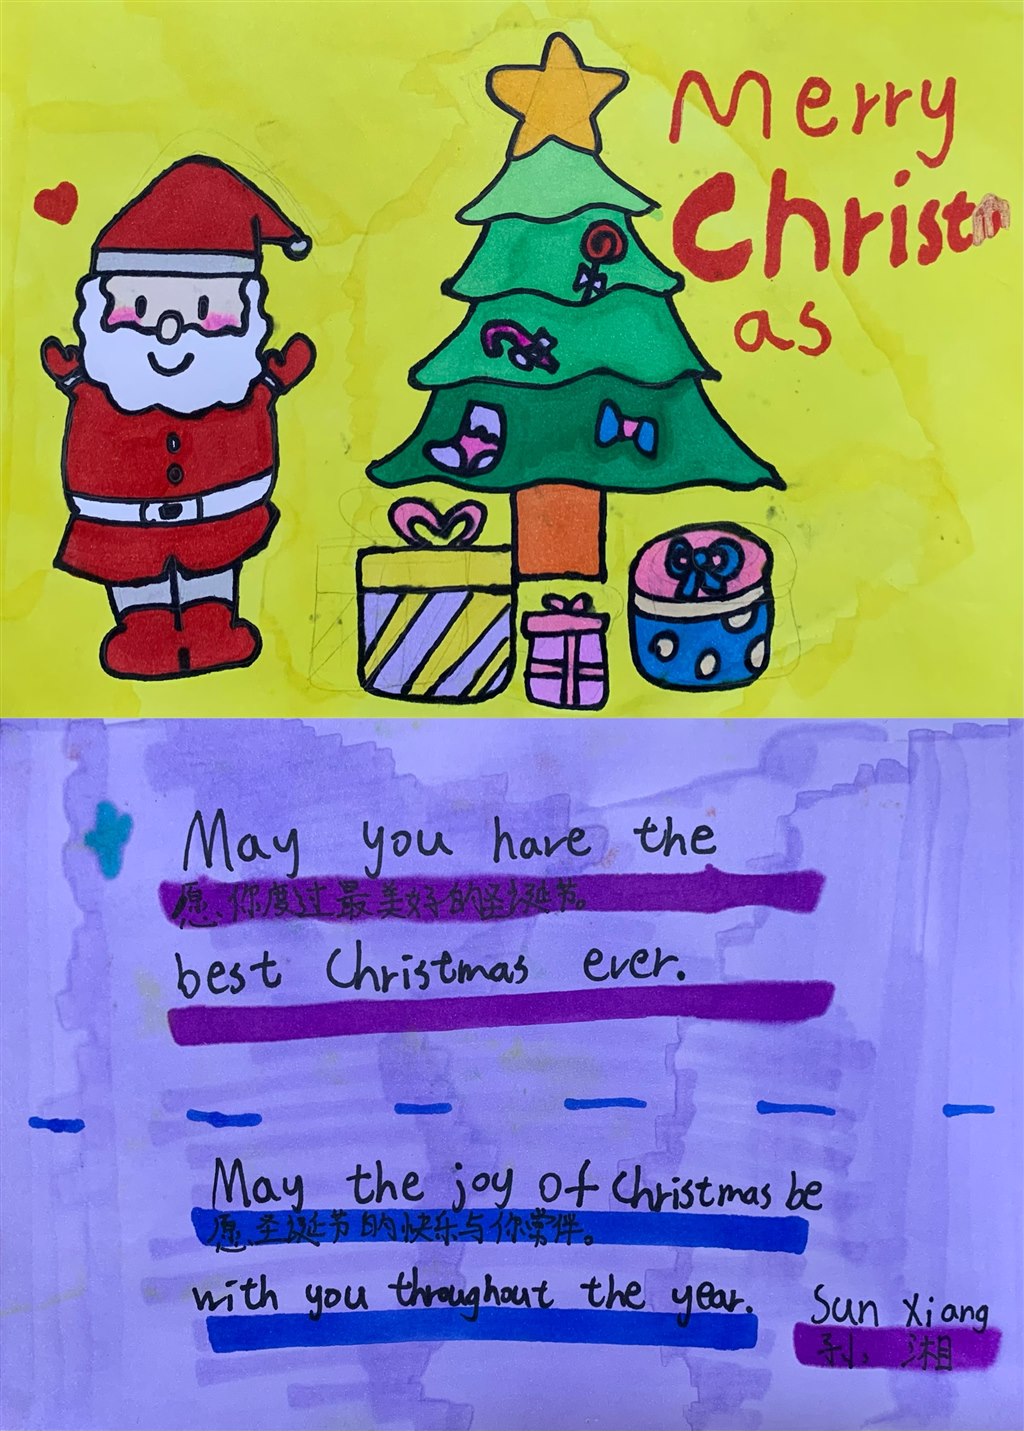 Merry
Christm
as
May you have the
愿你度过最美好的圣诞节。
best Christmas ever.
May the joy of Christmas be
愿圣诞节的快乐与你常伴。
with you throughout the year.
Sun Xiang
孙湘